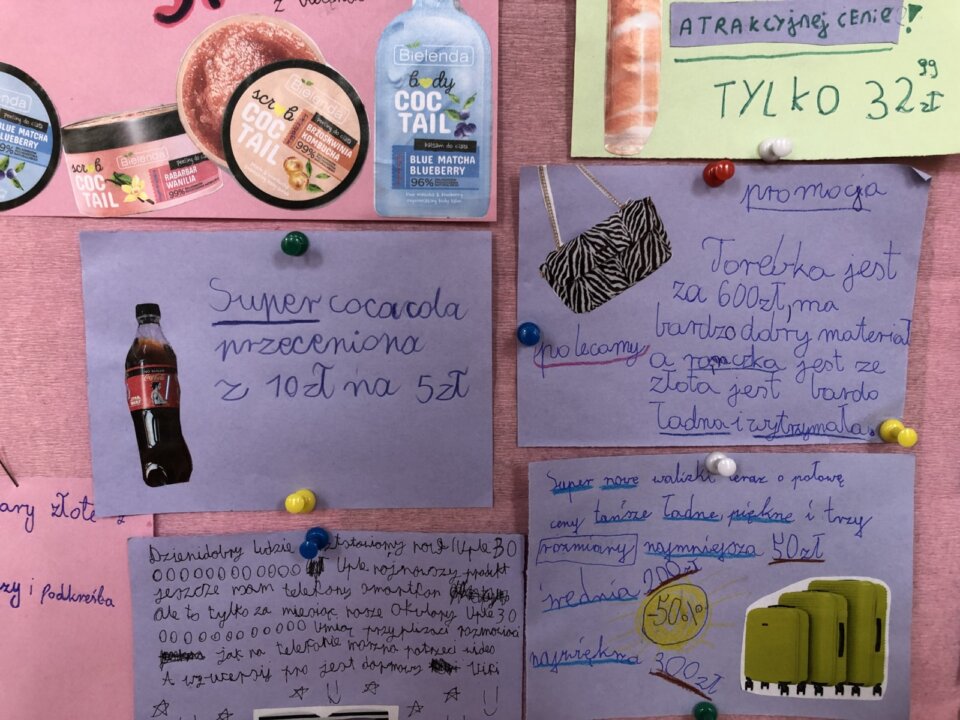 z
ATRAKCYJNEJ CENIE!
TYLKO 32 99 zł
Bielenda
peeling do ciała
BLUE MATCHA
BLUEBERRY
99%
Bielenda
scrub
COC
TAIL
peeling do ciała
RABARBAR
WANILIA
99%
Bielenda
scrub
COC
TAIL
peeling do ciała
BRZOSKWINIA
KOMBUCHA
99%
Bielenda
body
COC
TAIL
balsam do ciała
BLUE MATCHA
BLUEBERRY
96%
Super cocacola
przeceniona
z 10zł na 5zł
promocja
Torebka jest
za 600zł, ma
bardzo dobry materiał
polecamy
a rączka jest ze
złota jest bardo
ładna i wytrzymała.
ary złote z
zy i podkreśba
Dzienidobry ludzie
Uple 30
000000000000 Uple najnowszy produkt
jeszcze mam telefony smartfon
Ale to tylko za miesiąc nasze okulary Uple 30
0000000000 Umią przyplizaci rozmowina
jak na telefonie można patrzeci video
A wzwersji pro jest darmowy WiFi
Super nowe walizki teraz o połowę
ceny tańsze ładne, piękne i trzy
rozmiary najmniejsza 50zł
średnia 200zł
-50%
największa 300zł